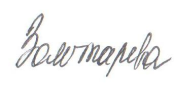 Золотарева